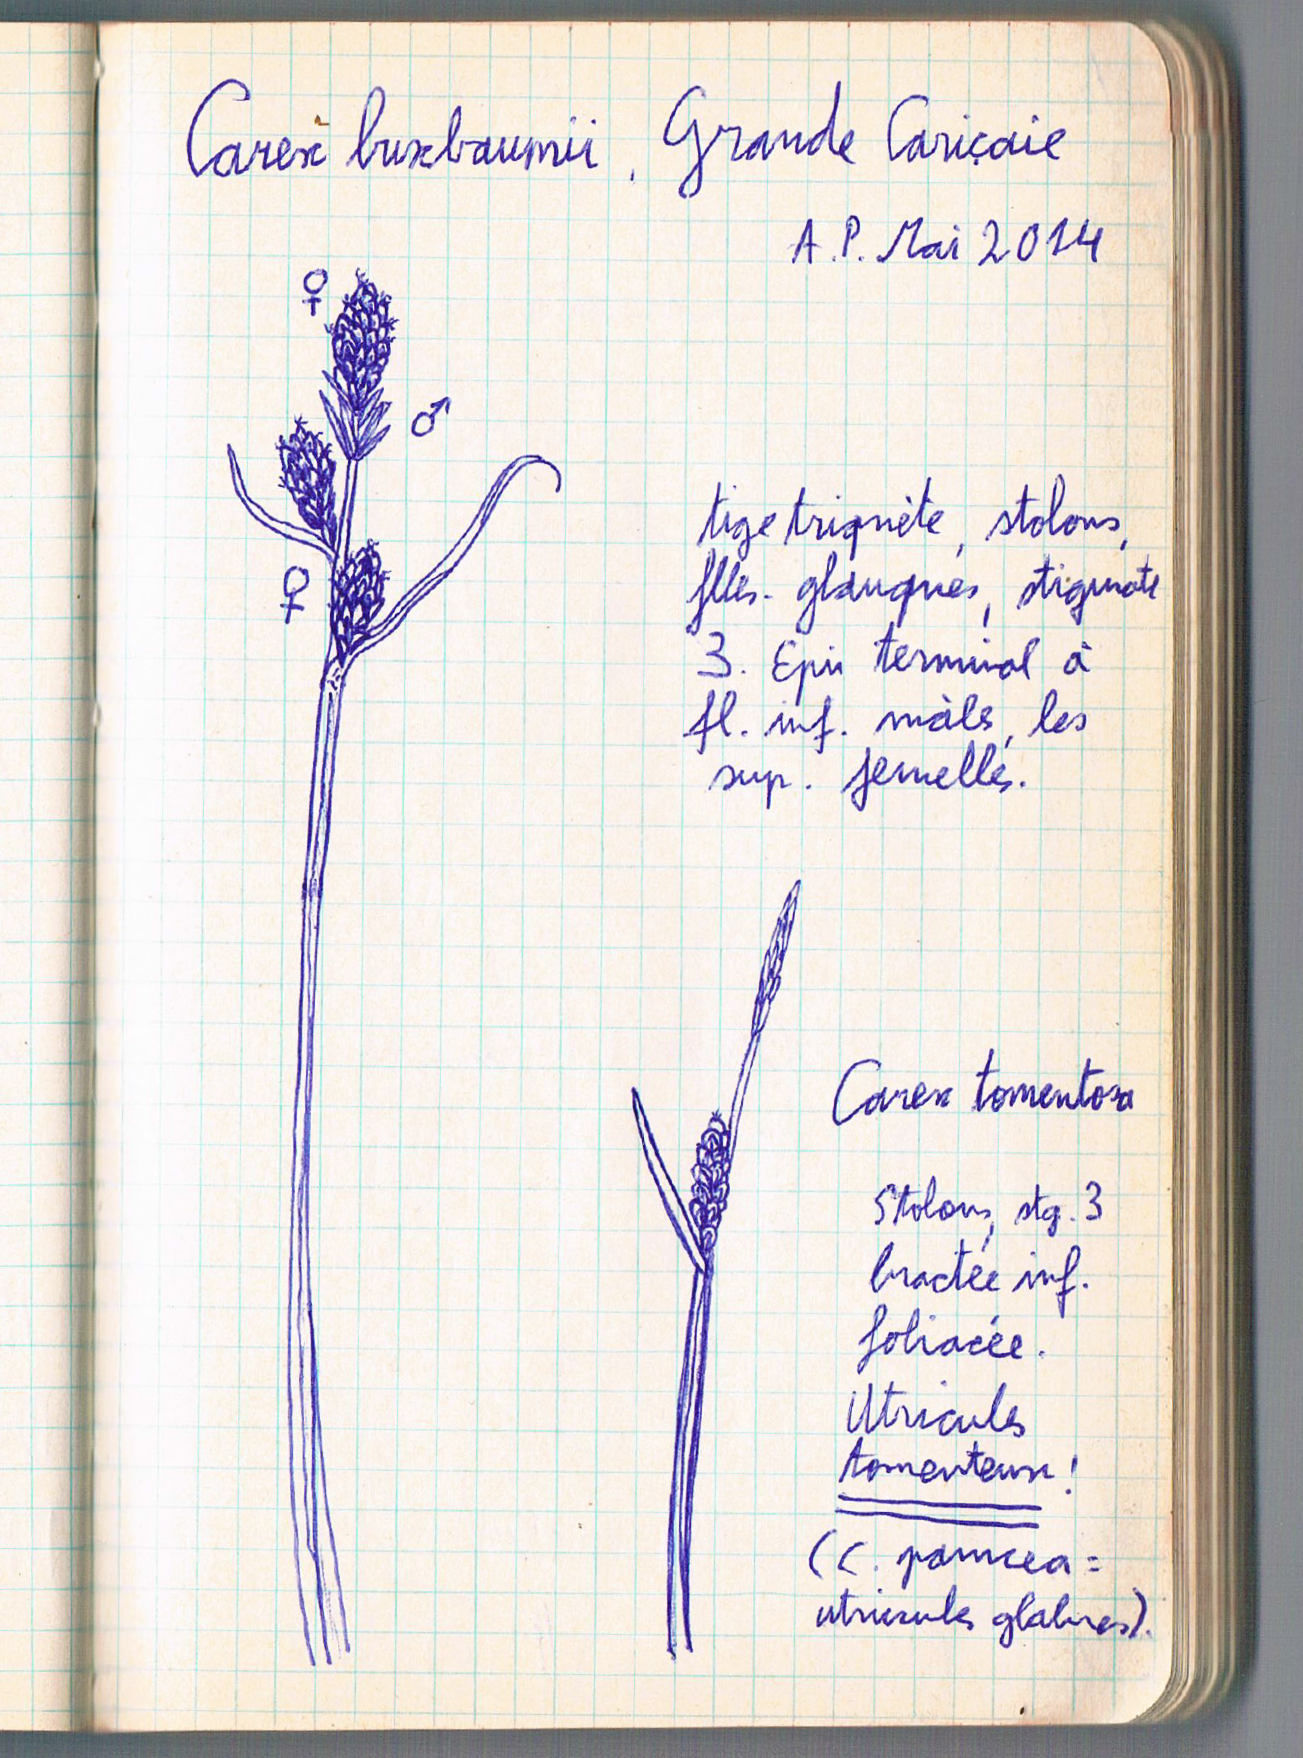 Carex buxbaumii, Grande Cariçaie
A.P. Mai 2014
♀
♂
♀
tige triquète, stolons,
flles. glauques, stigmate
3. Epi terminal à
fl. inf. mâle, les
sup. femelles.
Carex tomentosa
Stolons, stg. 3
bractée inf.
foliacée.
Utricules
tomenteux!
(C. panicea =
utricules glabres).